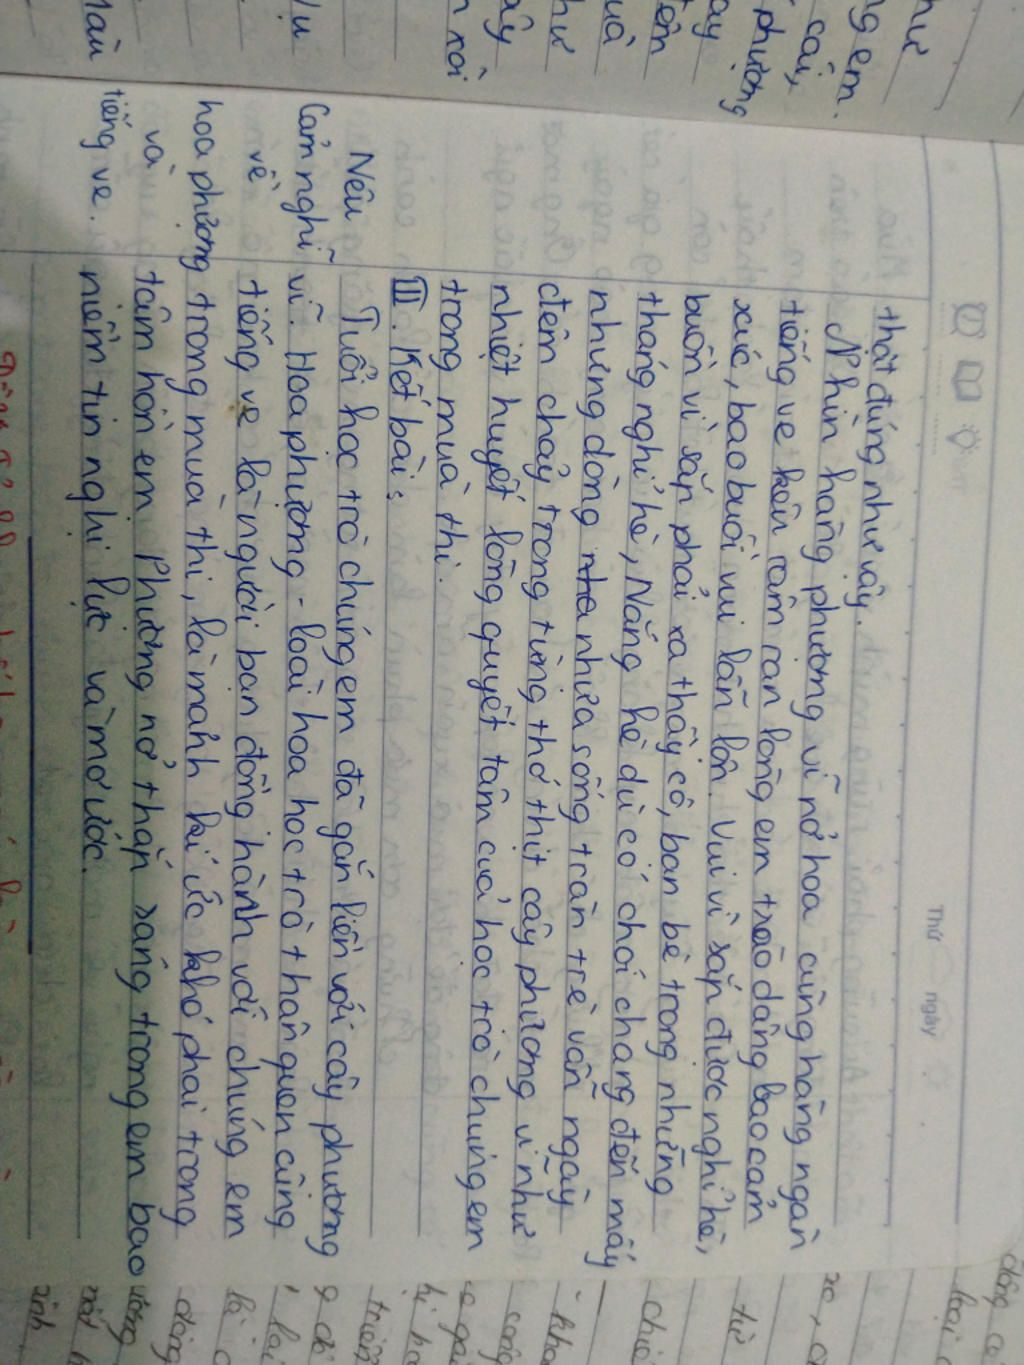 Thứ ngày
thật đúng như vậy.
Nhìn hàng phượng vĩ nở hoa cùng hàng ngàn
tiếng ve kêu râm ran lòng em trào dâng bao cảm
xúc, bao buổi vui lẫn lộn. Vui vì sắp được nghỉ hè,
buồn vì sắp phải xa thầy cô, bạn bè trong những
tháng nghỉ hè, Nắng hè dù có chói chang đến mấy
nhưng dòng nhựa sống tràn trề vẫn ngày
đêm chảy trong từng thớ thịt cây phượng vĩ như
nhiệt huyết lòng quyết tâm của học trò chúng em
trong mùa thi.
III. Kết bài:
Nêu
cảm nghĩ
về
hoa phượng
và
tiếng ve.
Tuổi học trò chúng em đã gắn liền với cây phượng
vĩ. Hoa phượng - loài hoa học trò thân quen cùng
tiếng ve là người bạn đồng hành với chúng em
trong mùa thi, là mảnh kí ức khó phai trong
tâm hồn em. Phượng nở thắp sáng trong em bao
niềm tin nghị lực và mơ ước.
như
ng em.
cây,
phượng
ay
tên
uả
hư
ây
n rồi